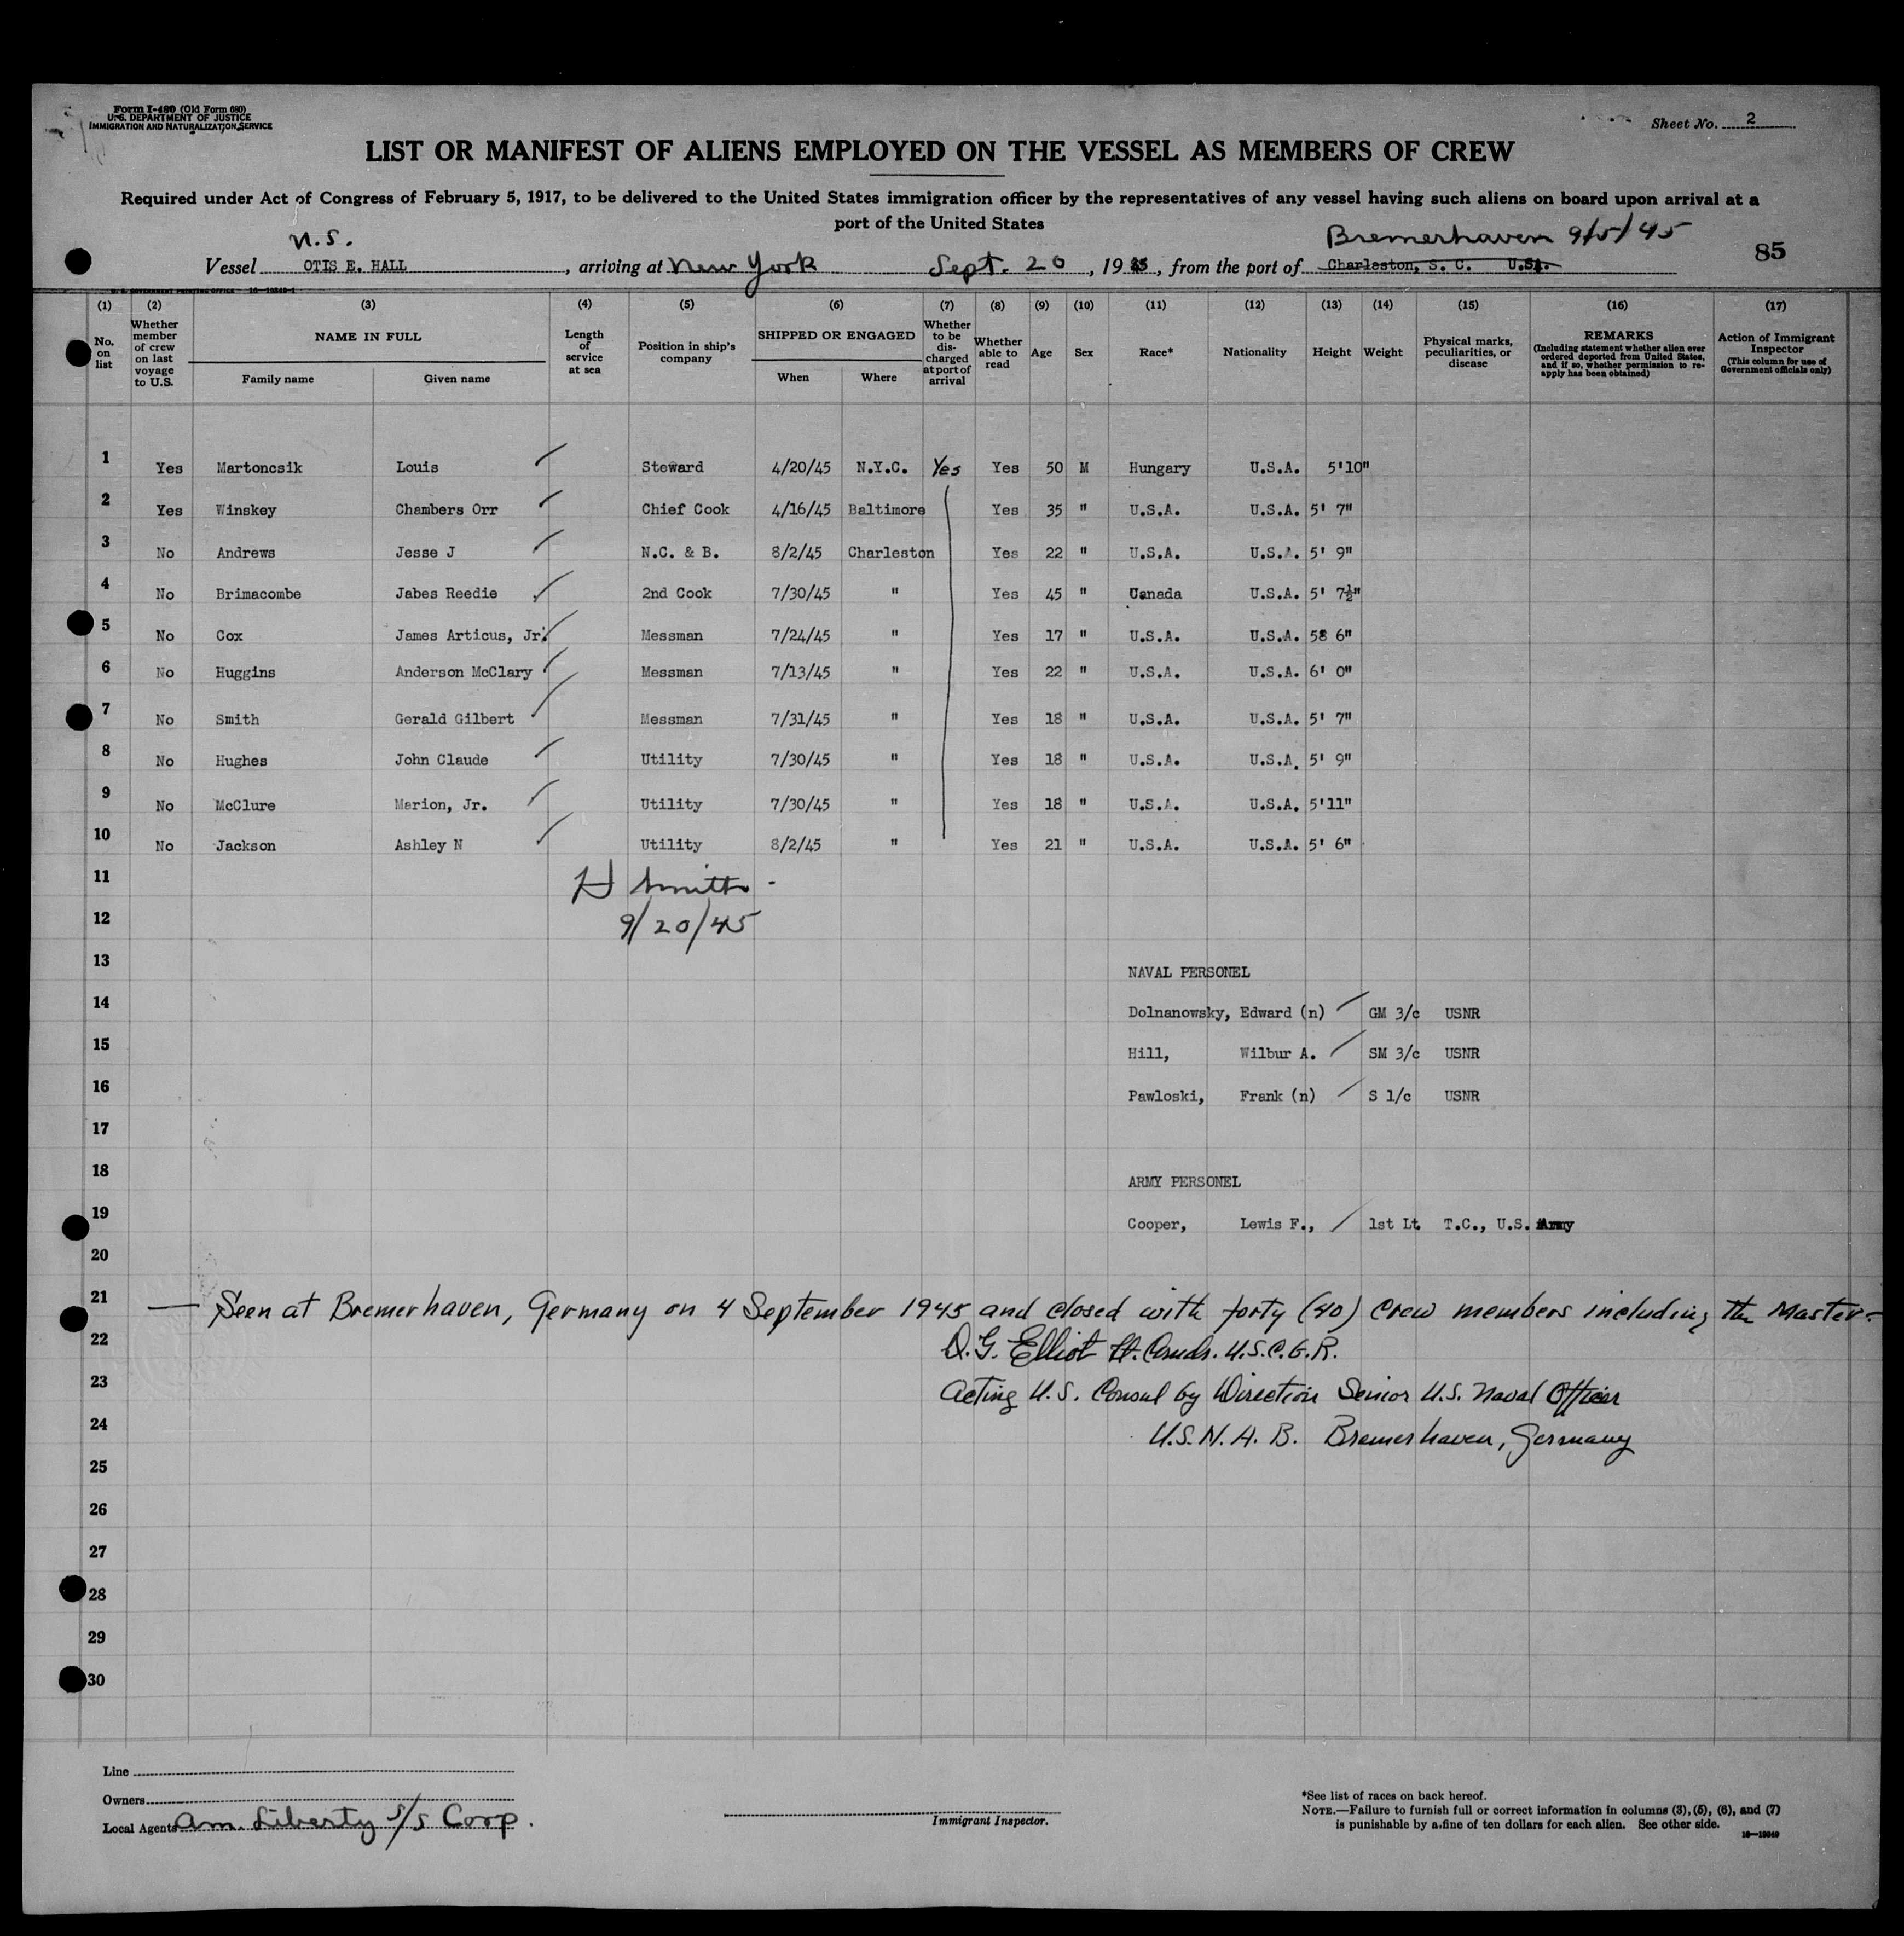 Form I-480 (Old Form 680)
U.S. DEPARTMENT OF JUSTICE
IMMIGRATION AND NATURALIZATION SERVICE
Sheet No. 2
LIST OR MANIFEST OF ALIENS EMPLOYED ON THE VESSEL AS MEMBERS OF CREW
Required under Act of Congress of February 5, 1917, to be delivered to the United States immigration officer by the representatives of any vessel having such aliens on board upon arrival at a
port of the United States
Bremerhaven 9/5/45
85
Vessel OTIS E. HALL, arriving at New York Sept. 20, 1945, from the port of Charleston, S. C. U.S.
(1) (2) (3) (4) (5) (6) (7) (8) (9) (10) (11) (12) (13) (14) (15) (16) (17)
No. on list
Whether member of crew on last voyage to U.S.
NAME IN FULL
Family name Given name
Length of service at sea
Position in ship's company
SHIPPED OR ENGAGED
When Where
Whether to be discharged at port of arrival
Whether able to read
Age
Sex
Race*
Nationality
Height
Weight
Physical marks, peculiarities, or disease
REMARKS
(Including statement whether alien ever ordered deported from United States, and if so, whether permission to re-apply has been obtained)
Action of Immigrant Inspector
(This column for use of Government officials only)
1 Yes Martoncsik Louis Steward 4/20/45 N.Y.C. Yes Yes 50 M Hungary U.S.A. 5'10"
2 Yes Winskey Chambers Orr Chief Cook 4/16/45 Baltimore Yes 35 " U.S.A. U.S.A. 5' 7"
3 No Andrews Jesse J N.C. & B. 8/2/45 Charleston Yes 22 " U.S.A. U.S.A. 5' 9"
4 No Brimacombe Jabes Reedie 2nd Cook 7/30/45 " Yes 45 " Canada U.S.A. 5' 7½"
5 No Cox James Articus, Jr. Messman 7/24/45 " Yes 17 " U.S.A. U.S.A. 5' 6"
6 No Huggins Anderson McClary Messman 7/13/45 " Yes 22 " U.S.A. U.S.A. 6' 0"
7 No Smith Gerald Gilbert Messman 7/31/45 " Yes 18 " U.S.A. U.S.A. 5' 7"
8 No Hughes John Claude Utility 7/30/45 " Yes 18 " U.S.A. U.S.A. 5' 9"
9 No McClure Marion, Jr. Utility 7/30/45 " Yes 18 " U.S.A. U.S.A. 5'11"
10 No Jackson Ashley N Utility 8/2/45 " Yes 21 " U.S.A. U.S.A. 5' 6"
11 H Smith
12 9/20/45
13 NAVAL PERSONEL
14 Dolnanowsky, Edward (n) GM 3/c USNR
15 Hill, Wilbur A. SM 3/c USNR
16 Pawloski, Frank (n) S 1/c USNR
17
18 ARMY PERSONEL
19 Cooper, Lewis F., 1st Lt. T.C., U.S. Army
20
21 — Seen at Bremerhaven, Germany on 4 September 1945 and closed with forty (40) crew members including the Master.
22 D.G. Elliot Lt. Cmdr. U.S.C.G.R.
23 Acting U.S. Consul by Direction Senior U.S. Naval Officer
24 U.S.N.A.B. Bremerhaven, Germany
25
26
27
28
29
30
Line
Owners
Local Agents Am. Liberty S/S Corp.
Immigrant Inspector.
*See list of races on back hereof.
NOTE.—Failure to furnish full or correct information in columns (3), (5), (6), and (7)
is punishable by a fine of ten dollars for each alien. See other side.